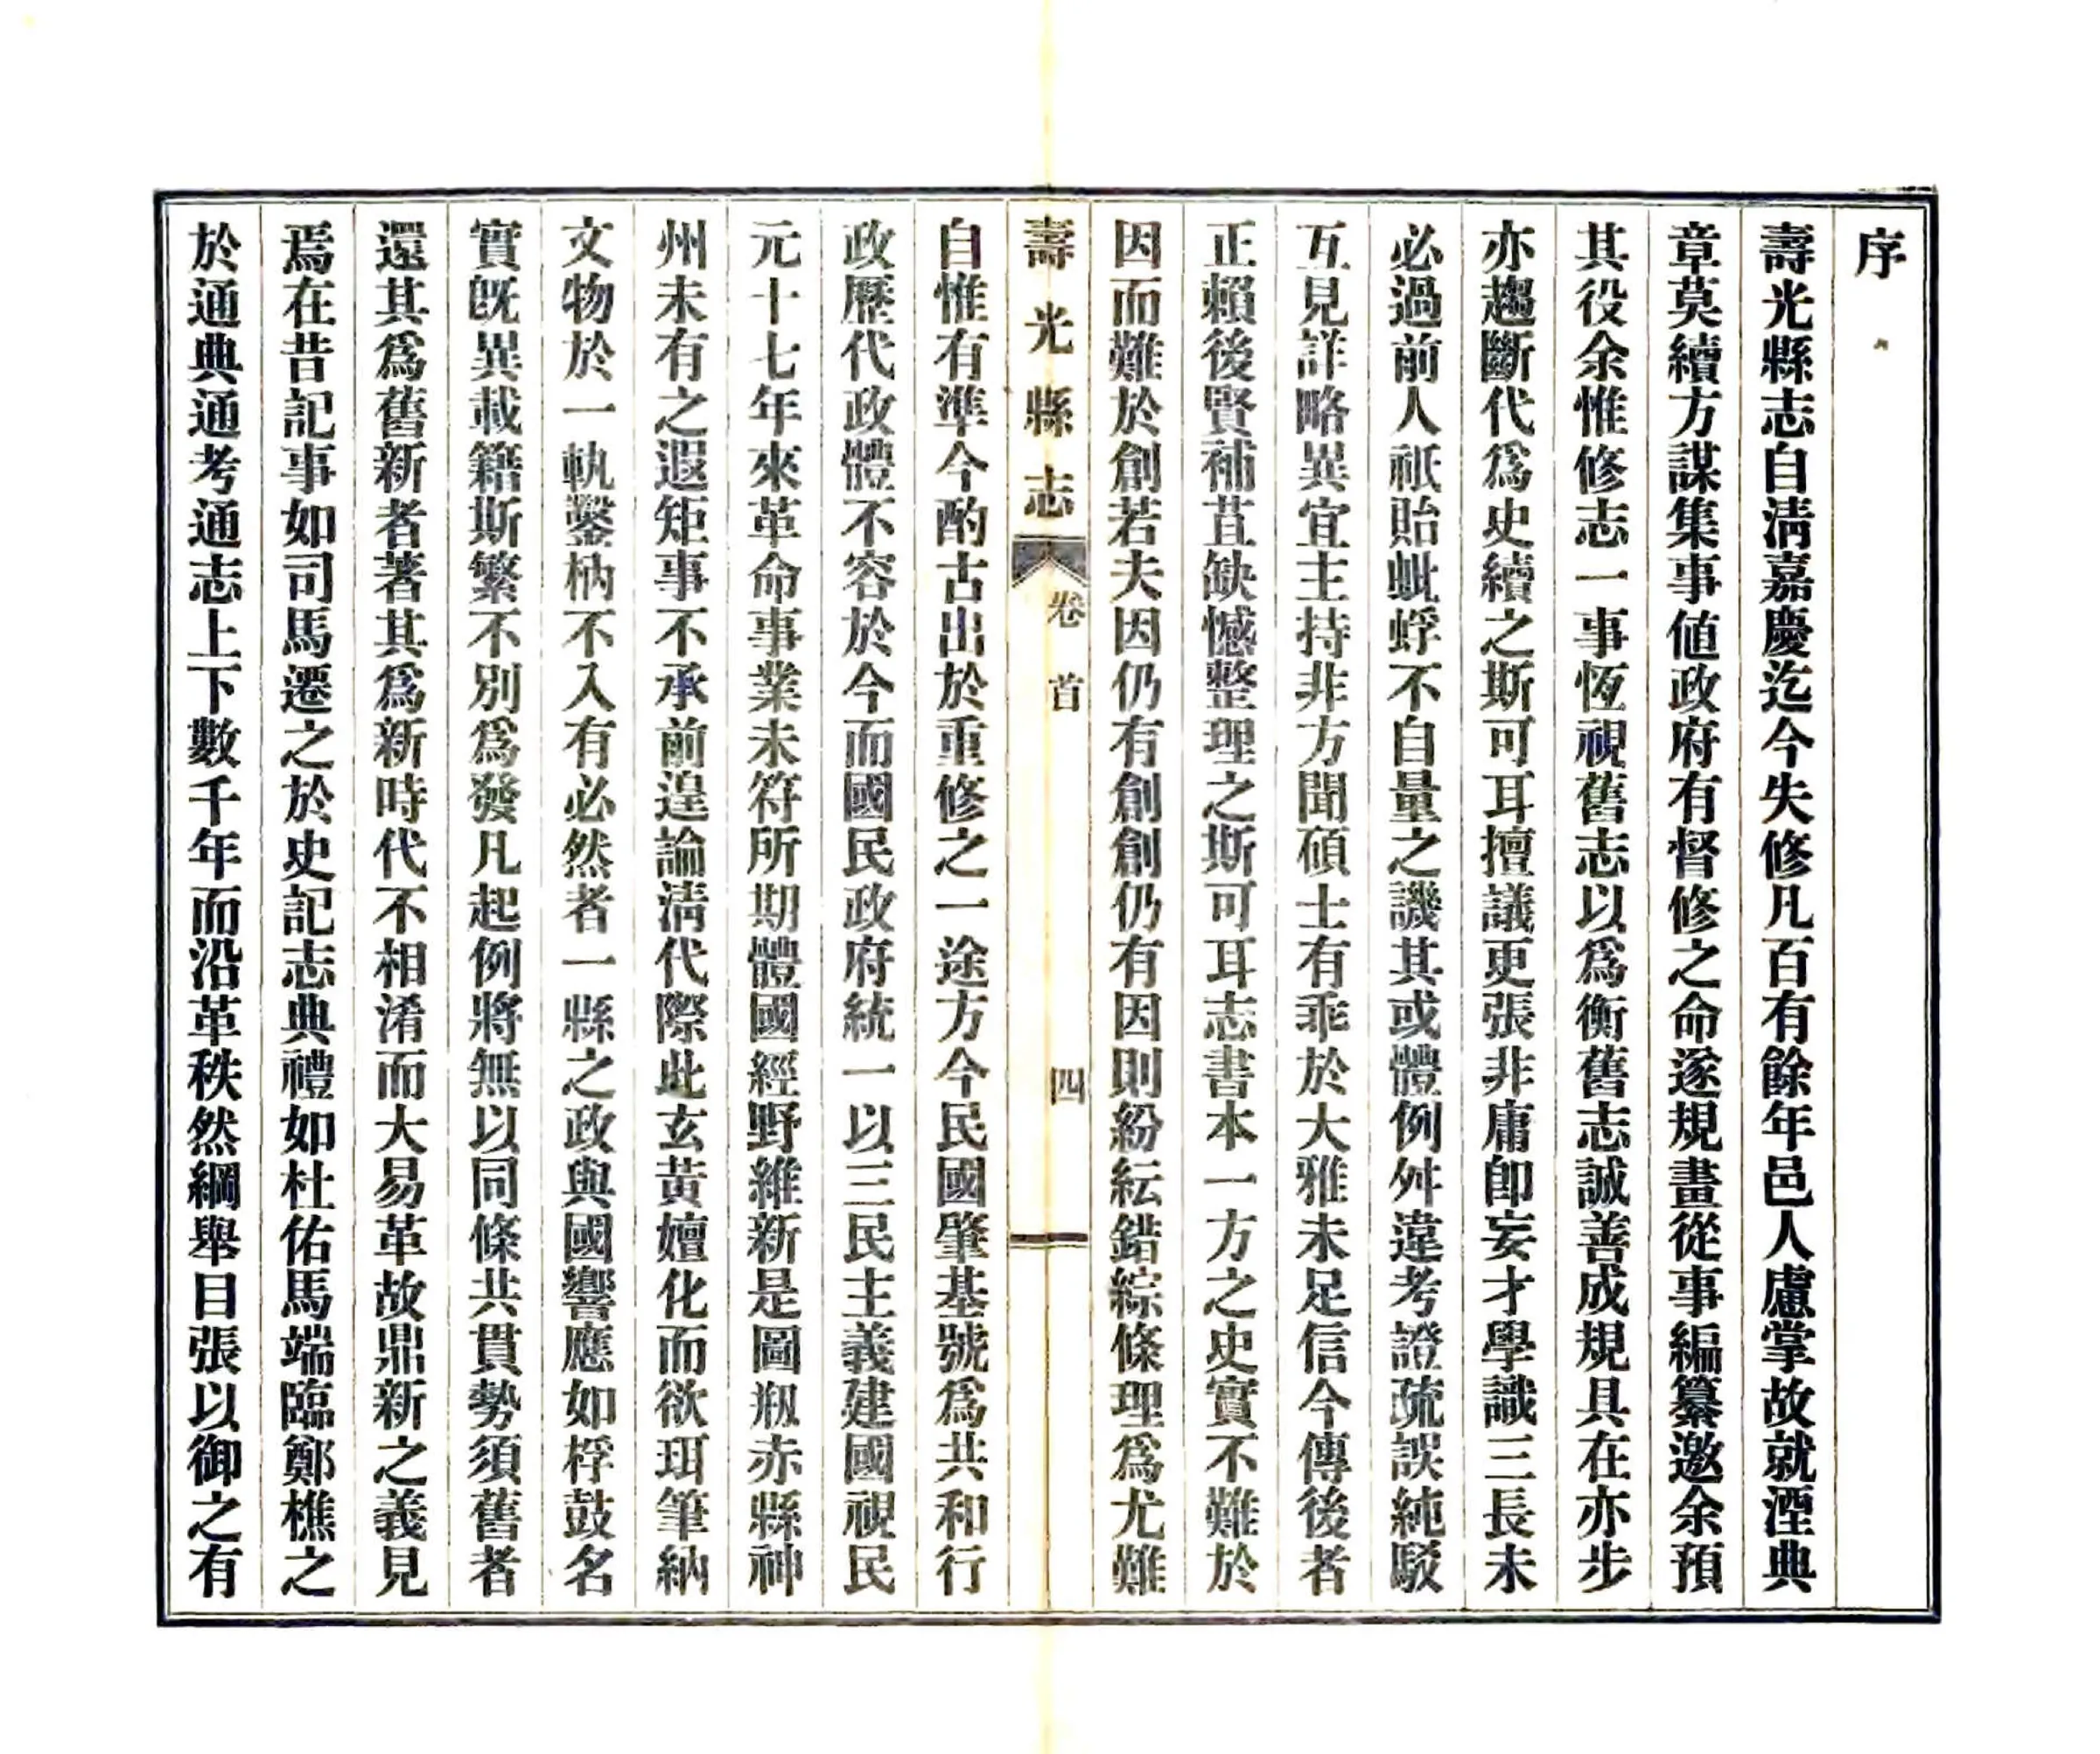 序
壽光縣志自淸嘉慶迄今失修凡百有餘年邑人慮掌故就湮典
章莫續方謀集事値政府有督修之命遂規畫從事編纂邀余預
其役余惟修志一事恆視舊志以爲衡舊志誠善成規具在亦步
亦趨斷代爲史續之斯可耳擅議更張非庸卽妄才學識三長未
必過前人祇貽蚍蜉不自量之譏其或體例舛違考證疏誤純駁
互見詳略異宜主持非方聞碩士有乖於大雅未足信今傳後者
正賴後賢補苴缺憾整理之斯可耳志書本一方之史實不難於
因而難於創若夫因仍有創創仍有因則紛紜錯綜條理爲尤難
壽光縣志 卷首 四
自惟有準今酌古出於重修之一途方今民國肇基號爲共和行
政歷代政體不容於今而國民政府統一以三民主義建國視民
元十七年來革命事業未符所期體國經野維新是圖剏赤縣神
州未有之遐矩事不承前遑論淸代際此玄黃嬗化而欲珥筆納
文物於一軌鑿枘不入有必然者一縣之政與國響應如桴鼓名
實旣異載籍斯繁不別爲發凡起例將無以同條共貫勢須舊者
還其爲舊新者著其爲新時代不相淆而大易革故鼎新之義見
焉在昔記事如司馬遷之於史記志典禮如杜佑馬端臨鄭樵之
於通典通考通志上下數千年而沿革秩然綱舉目張以御之有